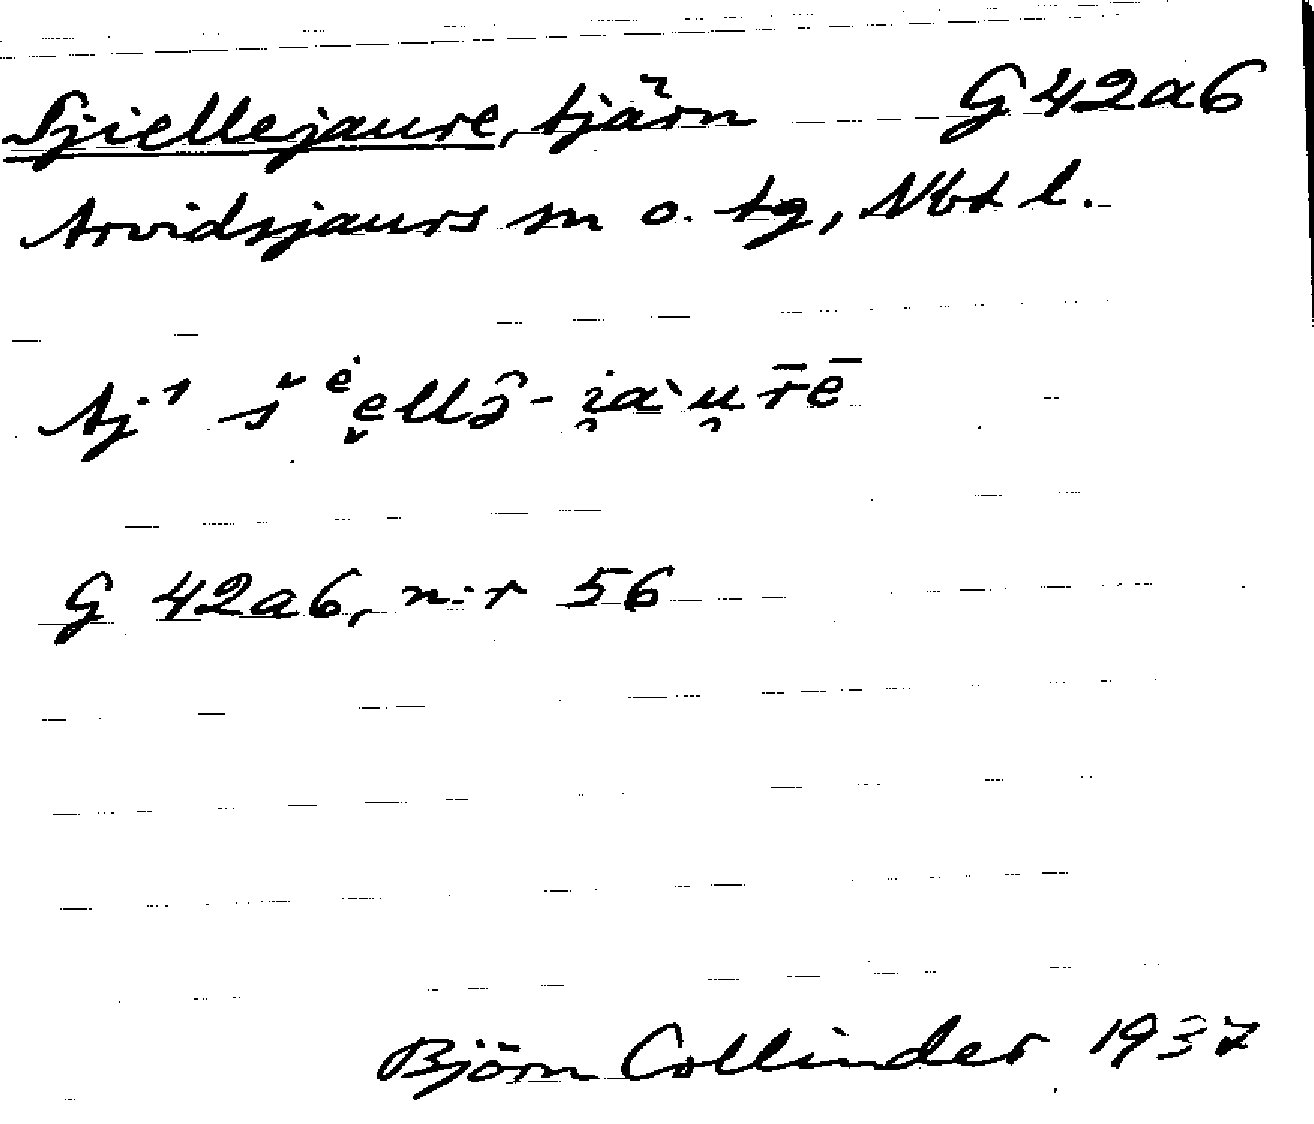 Sjiellejaure, tjärn G 42a6
Arvidsjaurs sn o. tg, Nbt l.
Aj¹ š ė̬ellə̑-i̯ààu̯r̄ē
G 42a6, n:r 56
Björn Collinder 1937